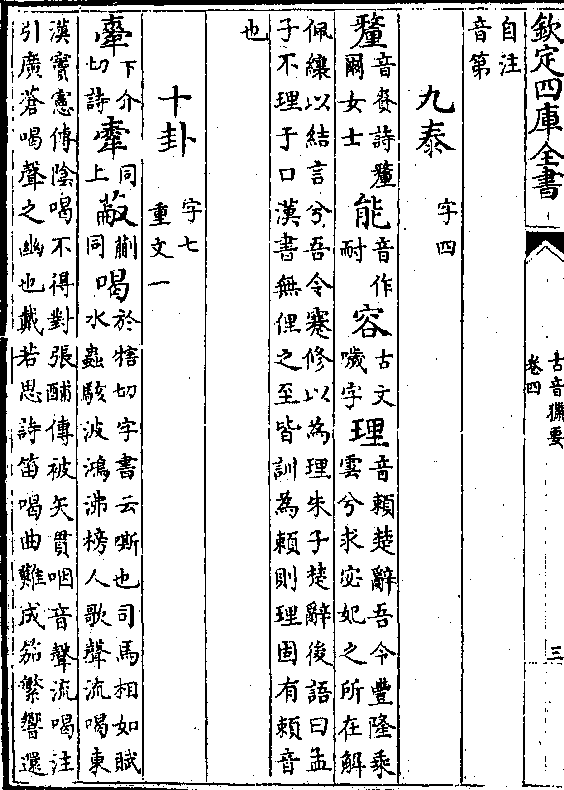 欽定四庫全書
古音獵要
卷四
三
自注
音第
九泰
字四
釐音賚詩釐爾女士能音作耐容古文噦字理音賴楚辭吾令豐隆乘雲兮求宓妃之所在解
佩纕以結言兮吾令蹇修以為理朱子楚辭後語曰孟子不理于口漢書無俚之至皆訓為賴則理固有賴音
也
十卦
字七
重文一
㸷下介切詩㸷同上㪍同蒯喝於犗切字書云嘶也司馬相如賦水蟲駭波鴻沸榜人歌聲流喝東
漢竇憲傳陰喝不得對張酺傳被矢貫咽音聲流喝注引廣蒼喝聲之幽也戴若思詩笛喝曲難成笳繁響還